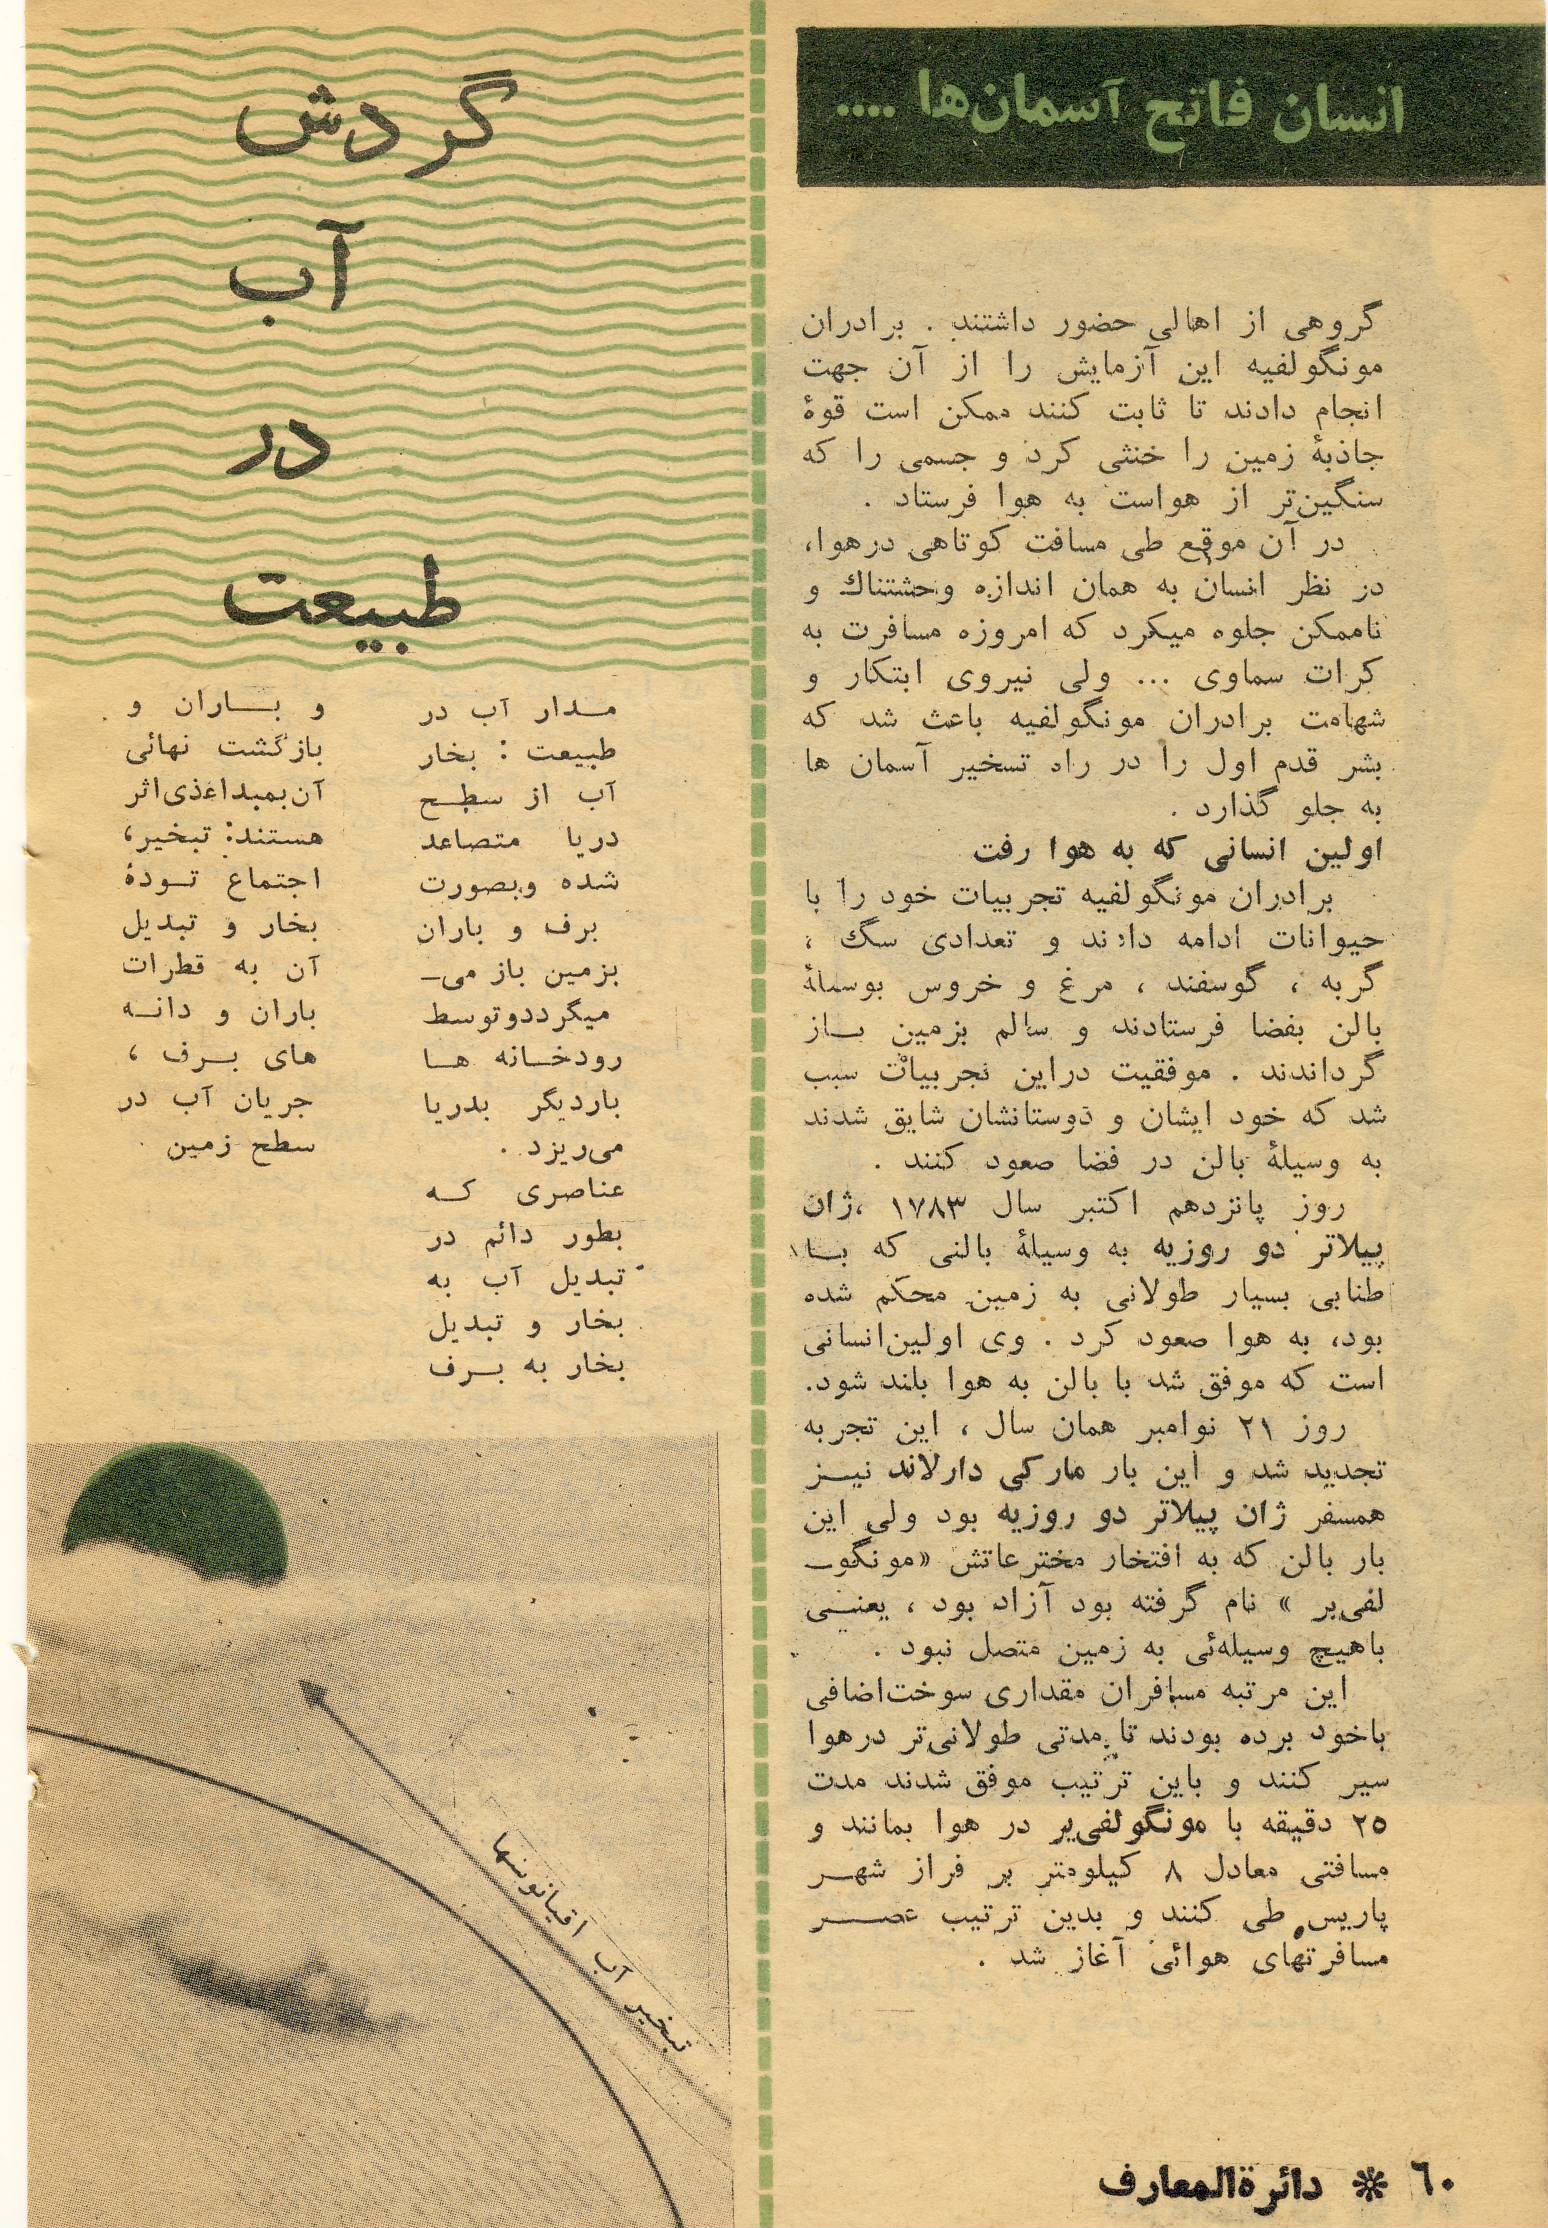 انسان فاتح آسمان‌ها ....
گروهی از اهالی حضور داشتند . برادران
مونگولفیه این آزمایش را از آن جهت
انجام دادند تا ثابت کنند ممکن است قوهٔ
جاذبهٔ زمین را خنثی کرد و جسمی را که
سنگین‌تر از هواست به هوا فرستاد .
در آن موقع طی مسافت کوتاهی درهوا،
در نظر انسان به همان اندازه وحشتناك و
ناممکن جلوه میکرد که امروزه مسافرت به
کرات سماوی ... ولی نیروی ابتکار و
شهامت برادران مونگولفیه باعث شد که
بشر قدم اول را در راه تسخیر آسمان ها
به جلو گذارد .
اولین انسانی که به هوا رفت
برادران مونگولفیه تجربیات خود را با
حیوانات ادامه دادند و تعدادی سگ ،
گربه ، گوسفند ، مرغ و خروس بوسیلهٔ
بالن بفضا فرستادند و سالم بزمین بـاز
گرداندند . موفقیت دراین تجربیات سبب
شد که خود ایشان و دوستانشان شایق شدند
به وسیلهٔ بالن در فضا صعود کنند .
روز پانزدهم اکتبر سال ۱۷۸۳ ،ژان
پیلاتر دو روزیه به وسیلهٔ بالنی که بـا
طنابی بسیار طولانی به زمین محکم شده
بود، به هوا صعود کرد . وی اولین‌انسانی
است که موفق شد با بالن به هوا بلند شود.
روز ۲۱ نوامبر همان سال ، این تجربه
تجدید شد و این بار مارکی دارلاند نیـز
همسفر ژان پیلاتر دو روزیه بود ولی این
بار بالن که به افتخار مخترعاتش «مونگوـ
لفی‌یر » نام گرفته بود آزاد بود ، یعنـی
باهیچ وسیله‌ئی به زمین متصل نبود .
این مرتبه مسافران مقداری سوخت‌اضافی
باخود برده بودند تا مدتی طولانی‌تر درهوا
سیر کنند و باین ترتیب موفق شدند مدت
۲۵ دقیقه با مونگولفی‌یر در هوا بمانند و
مسافتی معادل ۸ کیلومتر بر فراز شهـر
پاریس طی کنند و بدین ترتیب عصـر
مسافرتهای هوائی آغاز شد .
گردش
آب
در
طبیعت
مـدار آب در
طبیعت : بخار
آب از سطح
دریا متصاعد
شده وبصورت
برف و باران
بزمین باز می‌ـ
میگرددوتوسط
رودخـانه هـا
باردیگر بدریا
می‌ریزد .
عناصری کـه
بطور دائم در
تبدیل آب به
بخار و تبدیل
بخار به بـرف
و بـاران و
بازگشت نهائی
آن‌بمبداءذی‌اثر
هستند: تبخیر،
اجتماع تـودهٔ
بخار و تبدیل
آن به قطرات
باران و دانـه
های بـرف ،
جریان آب در
سطح زمین
تبخیر آب اقیانوسها
٦٠ ❊ دائرةالمعارف